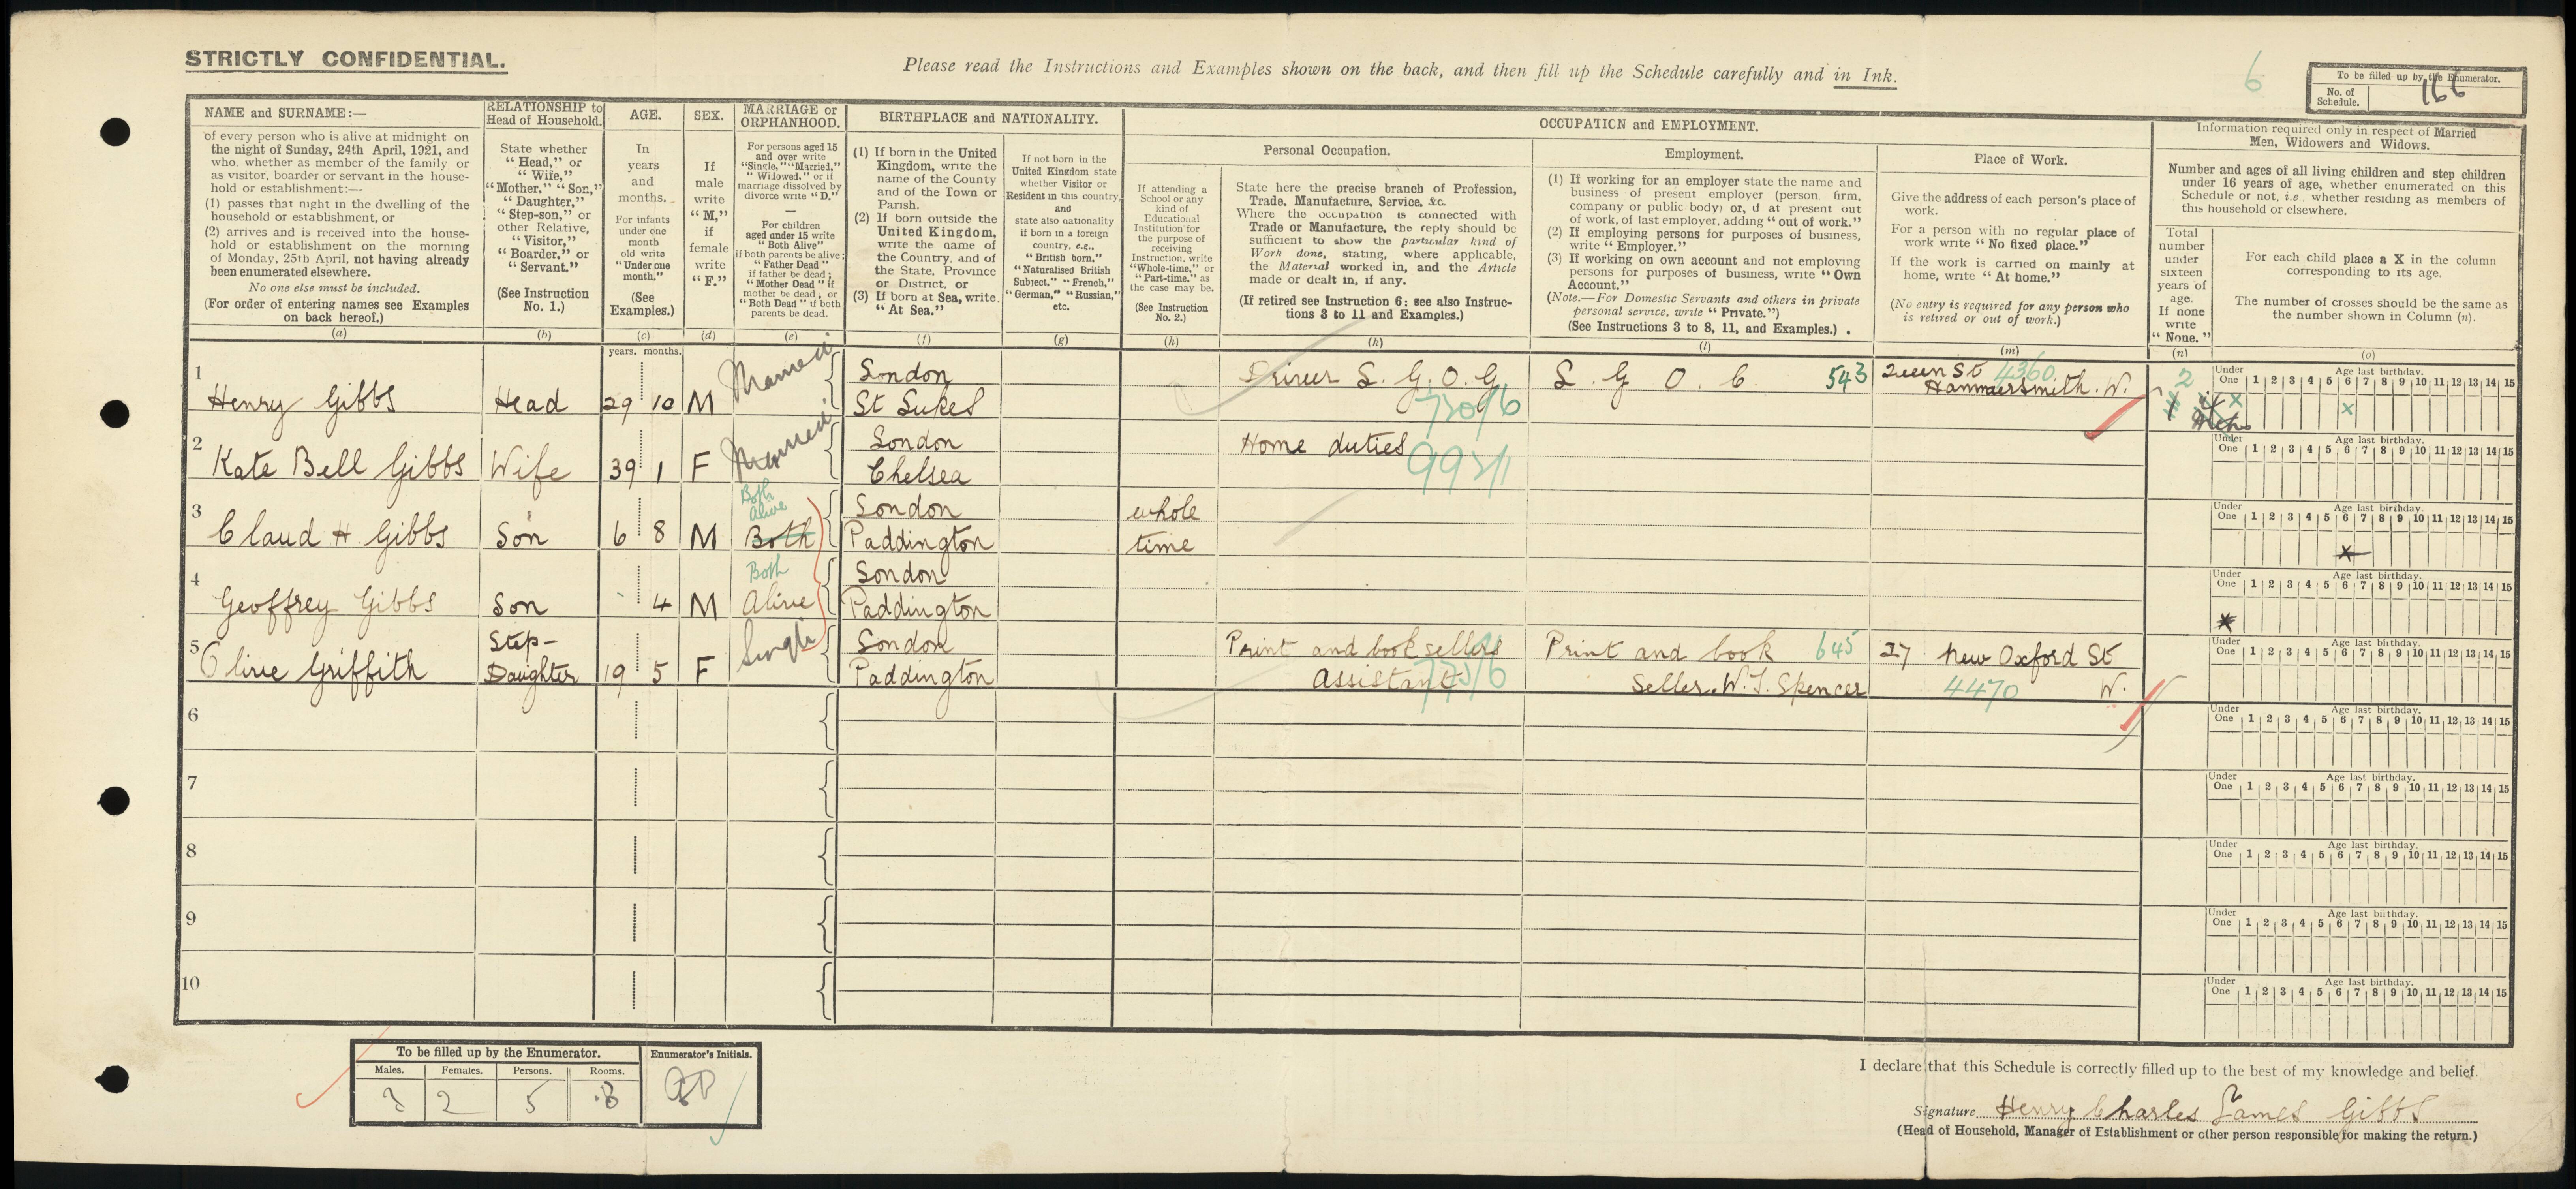 STRICTLY CONFIDENTIAL.
Please read the Instructions and Examples shown on the back, and then fill up the Schedule carefully and in Ink.
6
To be filled up by the Enumerator.
No. of Schedule. 166
NAME and SURNAME:—
of every person who is alive at midnight on
the night of Sunday, 24th April, 1921, and
who, whether as member of the family or
as visitor, boarder or servant in the house-
hold or establishment:—
(1) passes that night in the dwelling of the
household or establishment, or
(2) arrives and is received into the house-
hold or establishment on the morning
of Monday, 25th April, not having already
been enumerated elsewhere.
No one else must be included.
(For order of entering names see Examples
on back hereof.)
(a)
RELATIONSHIP to
Head of Household.
State whether
"Head," or
"Wife,"
"Mother," "Son,"
"Daughter,"
"Step-son," or
other Relative,
"Visitor,"
"Boarder," or
"Servant."
(See Instruction
No. 1.)
(b)
AGE.
In
years
and
months.
For infants
under one
month
old write
"Under one
month."
(See
Examples.)
(c)
SEX.
If
male
write
"M,"
if
female
write
"F."
(d)
MARRIAGE or
ORPHANHOOD.
For persons aged 15
and over write
"Single," "Married,"
"Widowed," or if
marriage dissolved by
divorce write "D."
—
For children
aged under 15 write
"Both Alive"
if both parents be alive;
"Father Dead"
if father be dead;
"Mother Dead" if
mother be dead, or
"Both Dead" if both
parents be dead.
(e)
BIRTHPLACE and NATIONALITY.
(1) If born in the United
Kingdom, write the
name of the County
and of the Town or
Parish.
(2) If born outside the
United Kingdom,
write the name of
the Country, and of
the State, Province
or District, or
(3) If born at Sea, write
"At Sea."
(f)
If not born in the
United Kingdom state
whether Visitor or
Resident in this country,
and
state also nationality
if born in a foreign
country, e.g.,
"British born,"
"Naturalised British
Subject," "French,"
"German," "Russian,"
etc.
(g)
OCCUPATION and EMPLOYMENT.
If attending a
School or any
kind of
Educational
Institution for
the purpose of
receiving
Instruction, write
"Whole-time," or
"Part-time," as
the case may be.
(See Instruction
No. 2.)
(h)
Personal Occupation.
State here the precise branch of Profession,
Trade, Manufacture, Service, &c.
Where the occupation is connected with
Trade or Manufacture, the reply should be
sufficient to show the particular kind of
Work done, stating, where applicable,
the Material worked in, and the Article
made or dealt in, if any.
(If retired see Instruction 6; see also Instruc-
tions 3 to 11 and Examples.)
(k)
Employment.
(1) If working for an employer state the name and
business of present employer (person, firm,
company or public body) or, if at present out
of work, of last employer, adding "out of work."
(2) If employing persons for purposes of business,
write "Employer."
(3) If working on own account and not employing
persons for purposes of business, write "Own
Account."
(Note.—For Domestic Servants and others in private
personal service, write "Private.")
(See Instructions 3 to 8, 11, and Examples.)
(l)
Place of Work.
Give the address of each person's place of
work.
For a person with no regular place of
work write "No fixed place."
If the work is carried on mainly at
home, write "At home."
(No entry is required for any person who
is retired or out of work.)
(m)
Information required only in respect of Married
Men, Widowers and Widows.
Number and ages of all living children and step children
under 16 years of age, whether enumerated on this
Schedule or not, i.e. whether residing as members of
this household or elsewhere.
Total
number
under
sixteen
years of
age.
If none
write
"None."
(n)
For each child place a X in the column
corresponding to its age.
The number of crosses should be the same as
the number shown in Column (n).
(o)
years. months.
1 Henry Gibbs Head 29 10 M Married London St Lukes Driver L. G. O. C 720/6 L G O C 543 Queen St 4360 Hammersmith. W. 2
Under One Age last birthday. 1 2 3 4 5 6 7 8 9 10 11 12 13 14 15
x x
2 Kate Bell Gibbs Wife 39 1 F Married London Chelsea Home duties
Under One Age last birthday. 1 2 3 4 5 6 7 8 9 10 11 12 13 14 15
3 Claud H Gibbs Son 6 8 M Both Alive Both London Paddington whole time
Under One Age last birthday. 1 2 3 4 5 6 7 8 9 10 11 12 13 14 15
x
4 Geoffrey Gibbs Son 4 M Both Alive London Paddington
Under One Age last birthday. 1 2 3 4 5 6 7 8 9 10 11 12 13 14 15
x
5 Olive Griffith Step-Daughter 19 5 F Single London Paddington Print and book sellers Assistant Print and book 645 Seller. W. T. Spencer 27 New Oxford St 4470 W.
Under One Age last birthday. 1 2 3 4 5 6 7 8 9 10 11 12 13 14 15
6
Under One Age last birthday. 1 2 3 4 5 6 7 8 9 10 11 12 13 14 15
7
Under One Age last birthday. 1 2 3 4 5 6 7 8 9 10 11 12 13 14 15
8
Under One Age last birthday. 1 2 3 4 5 6 7 8 9 10 11 12 13 14 15
9
Under One Age last birthday. 1 2 3 4 5 6 7 8 9 10 11 12 13 14 15
10
Under One Age last birthday. 1 2 3 4 5 6 7 8 9 10 11 12 13 14 15
To be filled up by the Enumerator.
Males. Females. Persons. Rooms.
3 2 5 3
Enumerator's Initials.
I declare that this Schedule is correctly filled up to the best of my knowledge and belief.
Signature Henry Charles James Gibbs
(Head of Household, Manager of Establishment or other person responsible for making the return.)